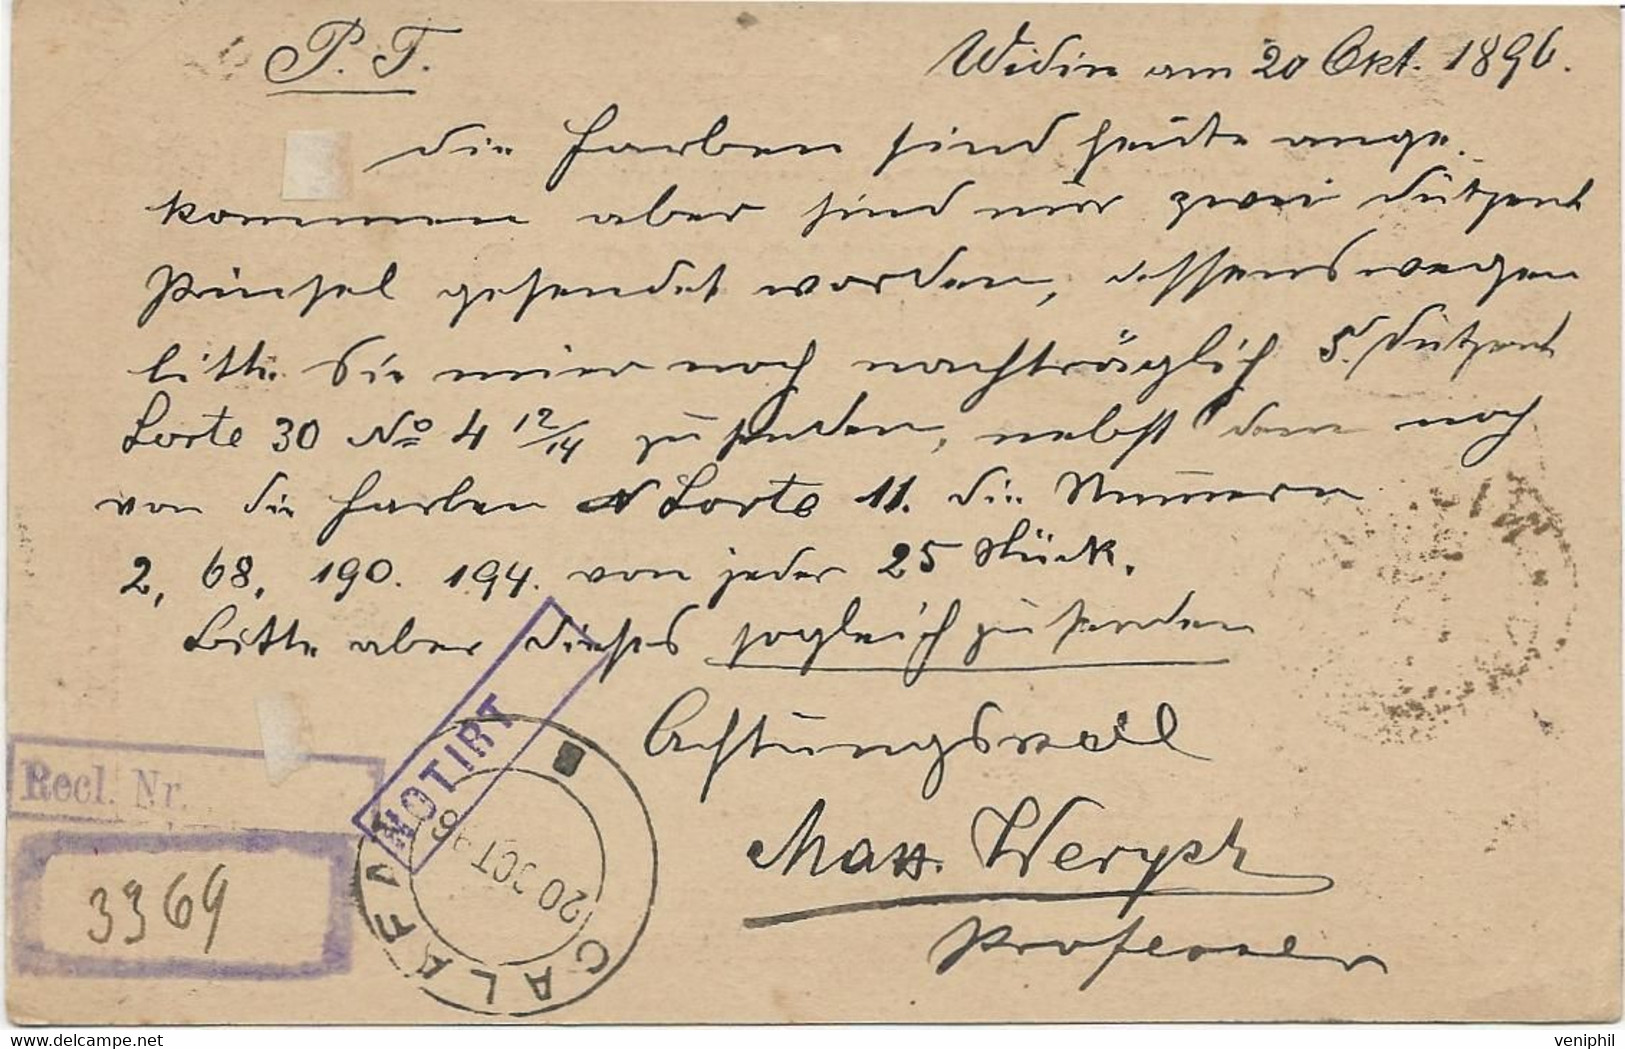 P. T.
Widin am 20 Okt. 1896.
die Farben sind heute ange-
kommen aber sind nur zwei Dutzent
Pinsel gesendet worden, dessenswegen
bitte Sie mier noch nachträglich 5. Dutzent
Sorte 30 No 4 12/14 zu senden, nebst dem noch
von die Farben Sorte 11. die Numern
2, 68, 190. 194. von jeder 25 Stück.
Bitte aber dieses sogleich zu senden
Achtungsvoll
Max.
Professor
NOTIRT
Recl. Nr.
3369
CALAFAT
20 OCT 96
delcampe.com
veniphil